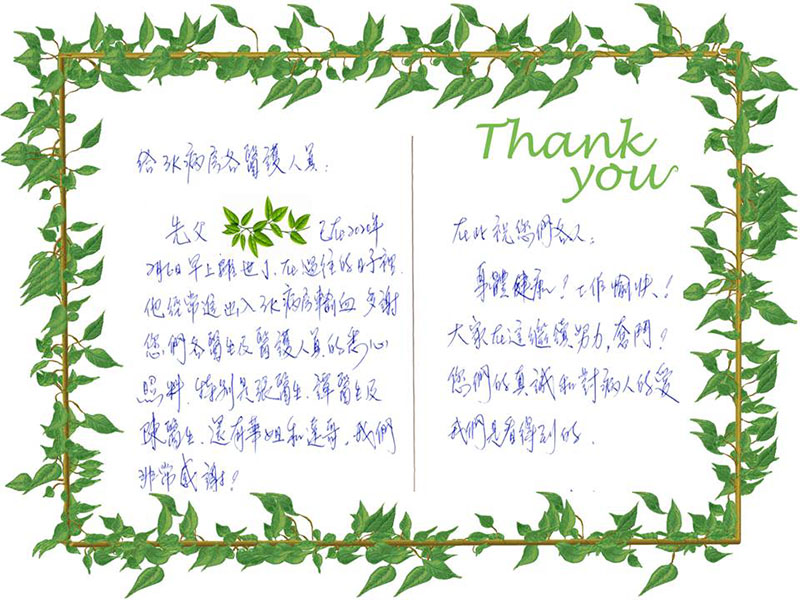 給3K病房各醫護人員：
先父 已在2020年
2月6日早上離世了.在過往的日子裡
他經常進出入3K病房輸血 多謝
您們各醫生及醫護人員的悉心
照料.特別是張醫生.譚醫生及
陳醫生.還有華姐和蓮哥.我們
非常感謝！
Thank
you
在此祝您們各人：
身體健康！工作愉快！
大家在這繼續努力,奮鬥！
您們的真誠和對病人的愛
我們是看得到的.